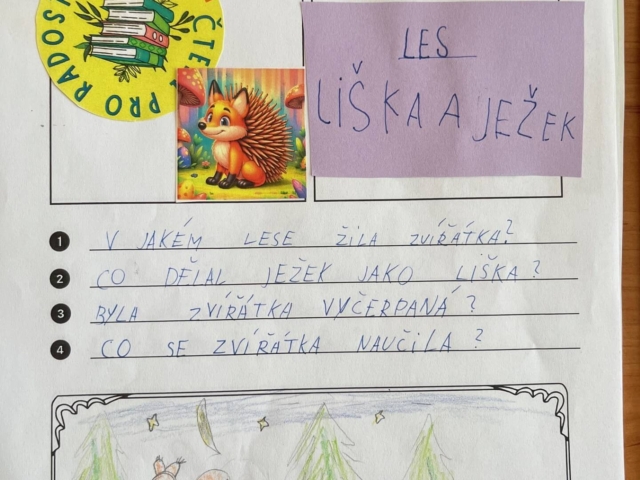 ČTE
PRO RADOS
LES
LIŠKA A JEŽEK
1 V JAKÉM LESE ŽILA ZVÍŘÁTKA?
2 CO DĚLAL JEŽEK JAKO LIŠKA?
3 BYLA ZVÍŘÁTKA VYČERPANÁ?
4 CO SE ZVÍŘÁTKA NAUČILA?